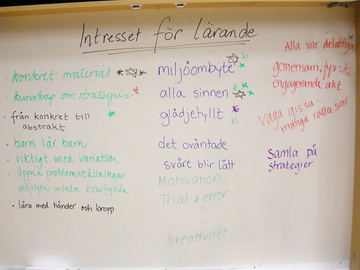 Intresset för lärande
konkret material
kunskap om strategier
från konkret till
abstrakt
barn lär barn
viktigt med variation
Öppna problemställningar
lära med händer och kropp
miljöombyte
alla sinnen
glädjefyllt
det oväntade
svårt blir lätt
Motivation
Trial & error
kreativitet
Alla var delaktiga
gemensam, fysisk
engagerande akt
Våga gissa -
många rätta svar
Samla på
strategier